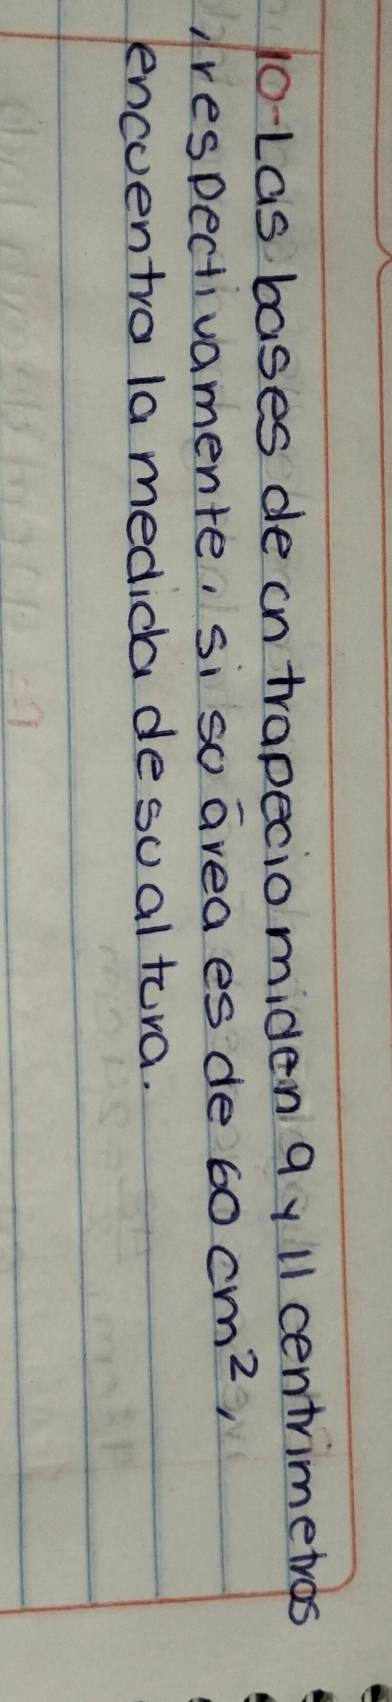 10-Las bases de un trapecio miden 9 y 11 centrimetros
, respectivamente, si su área es de 60 cm²,
encuentra la medida de su altura.